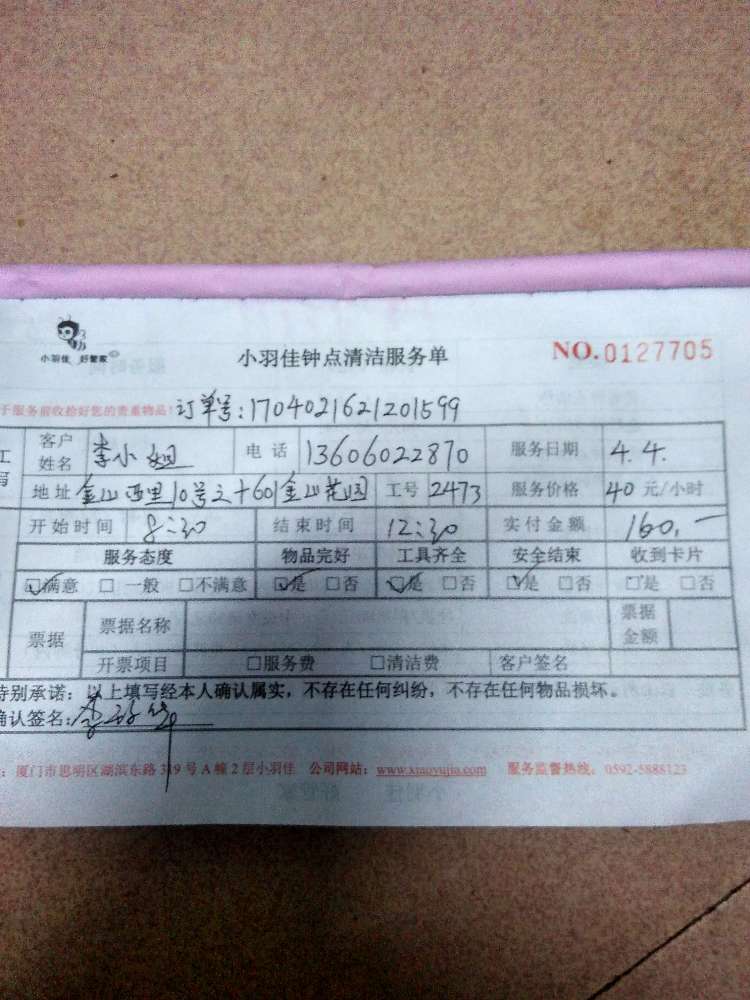 小羽佳 好管家
小羽佳钟点清洁服务单
NO.0127705
于服务前收拾好您的贵重物品!
订单号:1704021621201599
客户姓名 李小姐 电话 13606022870 服务日期 4.4.
地址 金山西里10号之十601金山花园 工号 2473 服务价格 40 元/小时
开始时间 8:30 结束时间 12:30 实付金额 160.-
服务态度 物品完好 工具齐全 安全结束 收到卡片
☑满意 □一般 □不满意 ☑是 □否 ☑是 □否 ☑是 □否 □是 □否
票据 票据名称 票据金额
开票项目 □服务费 □清洁费 客户签名
特别承诺:以上填写经本人确认属实,不存在任何纠纷,不存在任何物品损坏。
确认签名:
:厦门市思明区湖滨东路319号A幢2层小羽佳 公司网站:www.xiaoyujia.com 服务监督热线:0592-5888123